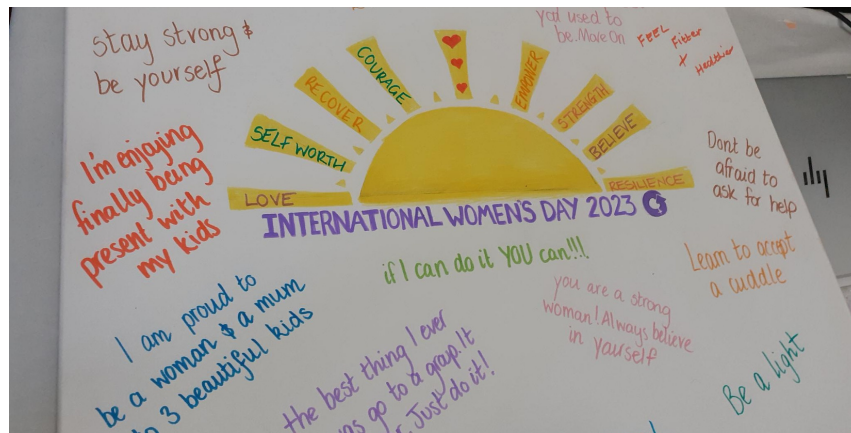 stay strong &
be yourself
you used to
be. Move On
FEEL
Fitter
+
Healthier
LOVE
SELF WORTH
RECOVER
COURAGE
EMPOWER
STRENGTH
BELIEVE
RESILIENCE
INTERNATIONAL WOMEN'S DAY 2023
I'm enjoying
finally being
present with
my kids
Dont be
afraid to
ask for help
if I can do it YOU can!!!
Learn to accept
a cuddle
you are a strong
woman! Always believe
in yourself
I am proud to
be a woman & a mum
to 3 beautiful kids
the best thing I ever
was go to a group. It
Just do it!
Be a light